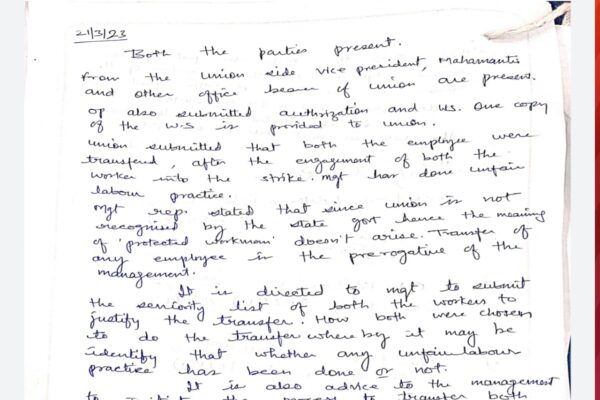 21/3/23
Both the parties present.
From the union side Vice president, Mahamantri
and other office bearer of union are present.
OP also submitted authorization and WS. One copy
of the W.S is provided to union.
Union submitted that both the employee were
transferd, after the engagement of both the
worker into the strike. Mgt has done unfair
labour practice.
Mgt rep. stated that since union is not
recognised by the state govt hence the meaning
of 'protected workman' doesn't arise. Transfer of
any employee is the prerogative of the
management.
It is directed to mgt to submit
the seniority list of both the workers to
justify the transfer. How both were chosen
to do the transfer where by it may be
identify that whether any unfair labour
practice has been done or not.
It is also advice to the management
the process to transfer both